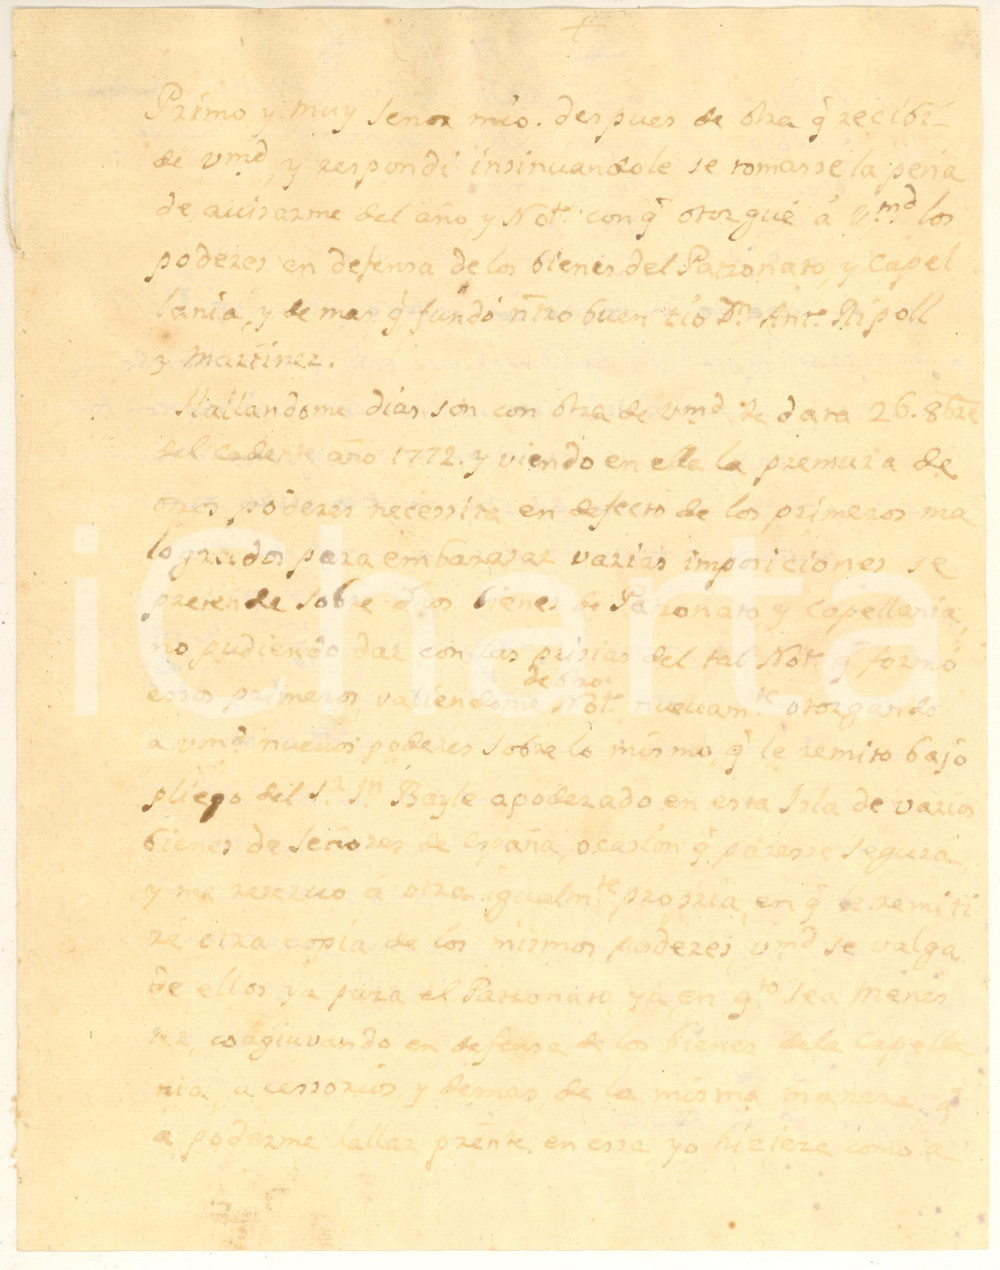 +
Primo y muy señor mio. despues de otra q̃ recibi
de vmd, y respondi insinuandole se tomasse la pena
de avisarme del año, y Notº. con q̃ otorgué á Vmd los
poderes en defensa de los bienes del Patronato, y Capel
lania, y demas q̃ fundó ñtro buen tio Dn. Antº. Ripoll
y Martinez.
Hallandome dias son con otra de vmd de data 26. 8bre
del cadente año 1772. y viendo en ella la premura de
otros poderes necessita en defecto de los primeros ma
logrados para embarazar varias imposiciones se
pretende sobre dhos bienes de Patronato, y Capellania,
no pudiendo dar con las prisias del tal Notº. q̃ formó
de otro
essos primeros, valiendome Notº. nuevamte. otorgando
a vmd nuevos poderes sobre lo mismo, q̃ le remito bajo
pliego del Sr. Dn. Bayle apoderado en esta Isla de varios
bienes de señores de España, ocasion q̃ paresse segura,
y me reservo á otra igualmte. propria, en q̃ le remiti
ré otra copia de los mismos poderes, vmd se valga
de ellos ya para el Patronato, ya en qto. sea menes
ter, coagiuvando en defensa de los bienes dela Capella
nia, accessorios, y demas, de la misma manera q̃
a poderme hallar prẽnte en essa, yo hiziera como a
iCharta